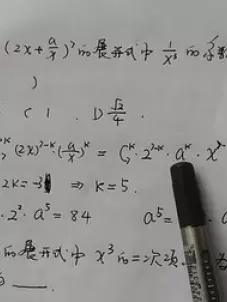 (2x + a/x)⁷ 的展开式中 1/x³ 的系数
)
C 1 . D √2/4 .
(2x)⁷⁻ᵏ · (a/x)ᵏ = C₇ · 2⁷⁻ᵏ · aᵏ · x⁷
2K = -3 ⇒ K = 5 .
· 2² · a⁵ = 84 a⁵ =
的展开式中 x³ 的二次项